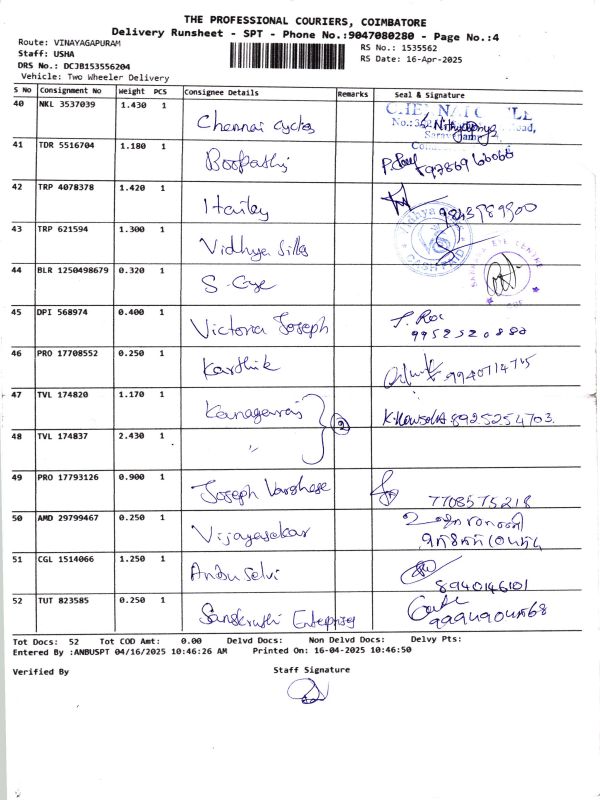 THE PROFESSIONAL COURIERS, COIMBATORE
Delivery Runsheet - SPT - Phone No.:9047080280 - Page No.:4
Route: VINAYAGAPURAM
Staff: USHA
DRS No.: DCJB153556204
Vehicle: Two Wheeler Delivery
RS No.: 1535562
RS Date: 16-Apr-2025
S No Consignment No Weight PCS Consignee Details Remarks Seal & Signature
40 NKL 3537039 1.430 1 Chennai Cycles
41 TDR 5516704 1.180 1 Boopathi
42 TRP 4078378 1.420 1 9843989900
43 TRP 621594 1.300 1 Vidhya Silks CASH PAID
44 BLR 1250498679 0.320 1 S-Eye EYE CENTRE
45 DPI 568974 0.400 1 Victoria Joseph 9952520882
46 PRO 17708552 0.250 1 Karthik 9940714715
47 TVL 174820 1.170 1 Kanagaraj 2 K.Kowsalya 8925254703
48 TVL 174837 2.430 1 "
49 PRO 17793126 0.900 1 Joseph Varghese 7708575218
50 AMD 29799467 0.250 1 Vijayasekar
51 CGL 1514066 1.250 1 Anbu Selvi 8940146101
52 TUT 823585 0.250 1 Sanskruthi Enterprises
Tot Docs: 52 Tot COD Amt: 0.00 Delvd Docs: Non Delvd Docs: Delvy Pts:
Entered By :ANBUSPT 04/16/2025 10:46:26 AM Printed On: 16-04-2025 10:46:50
Verified By Staff Signature